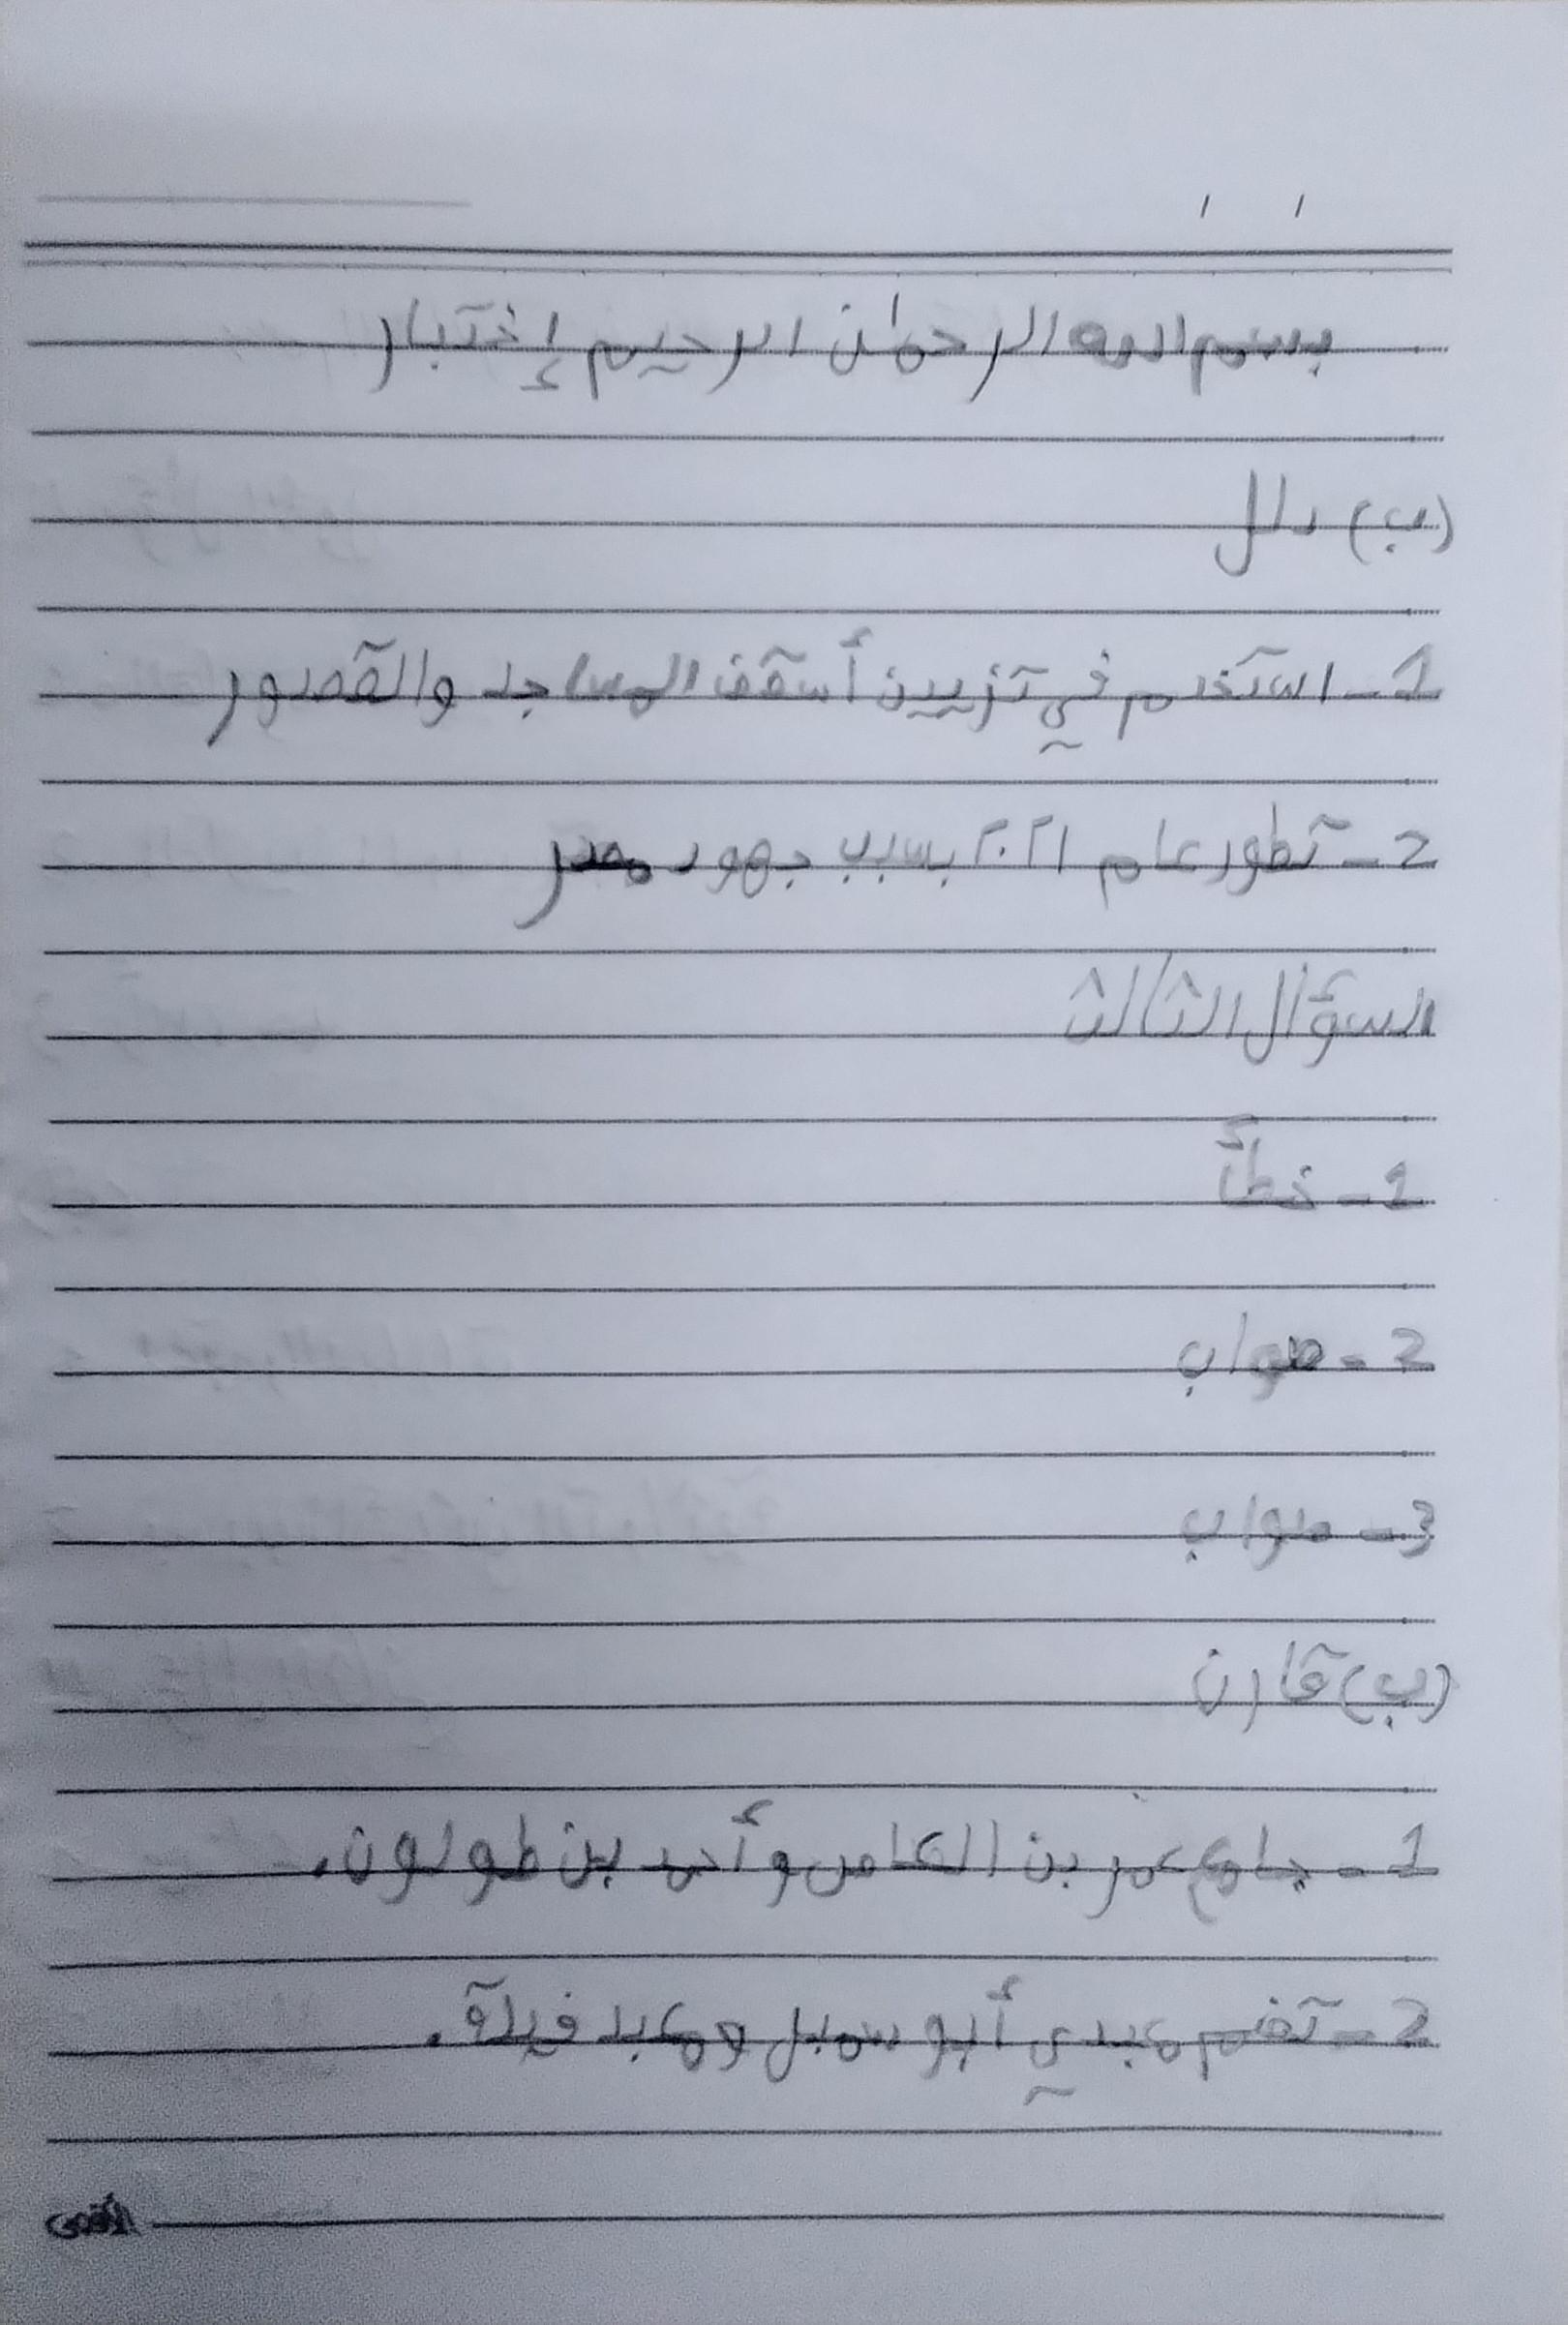 بسم الله الرحمٰن الرحيم إختبار
(ب) دلل
1- استخدم في تزيين أسقف المساجد والقصور
2- تطور عام ٢٠٢١ بسبب جهود مصر
السؤال الثالث
1- خطأ
2- صواب
3- صواب
(ب) قارن
1- جامع عمر بن العاص وأحمد بن طولون.
2- تضم معبدي أبو سمبل ومعبد فيلة.
الأقصى